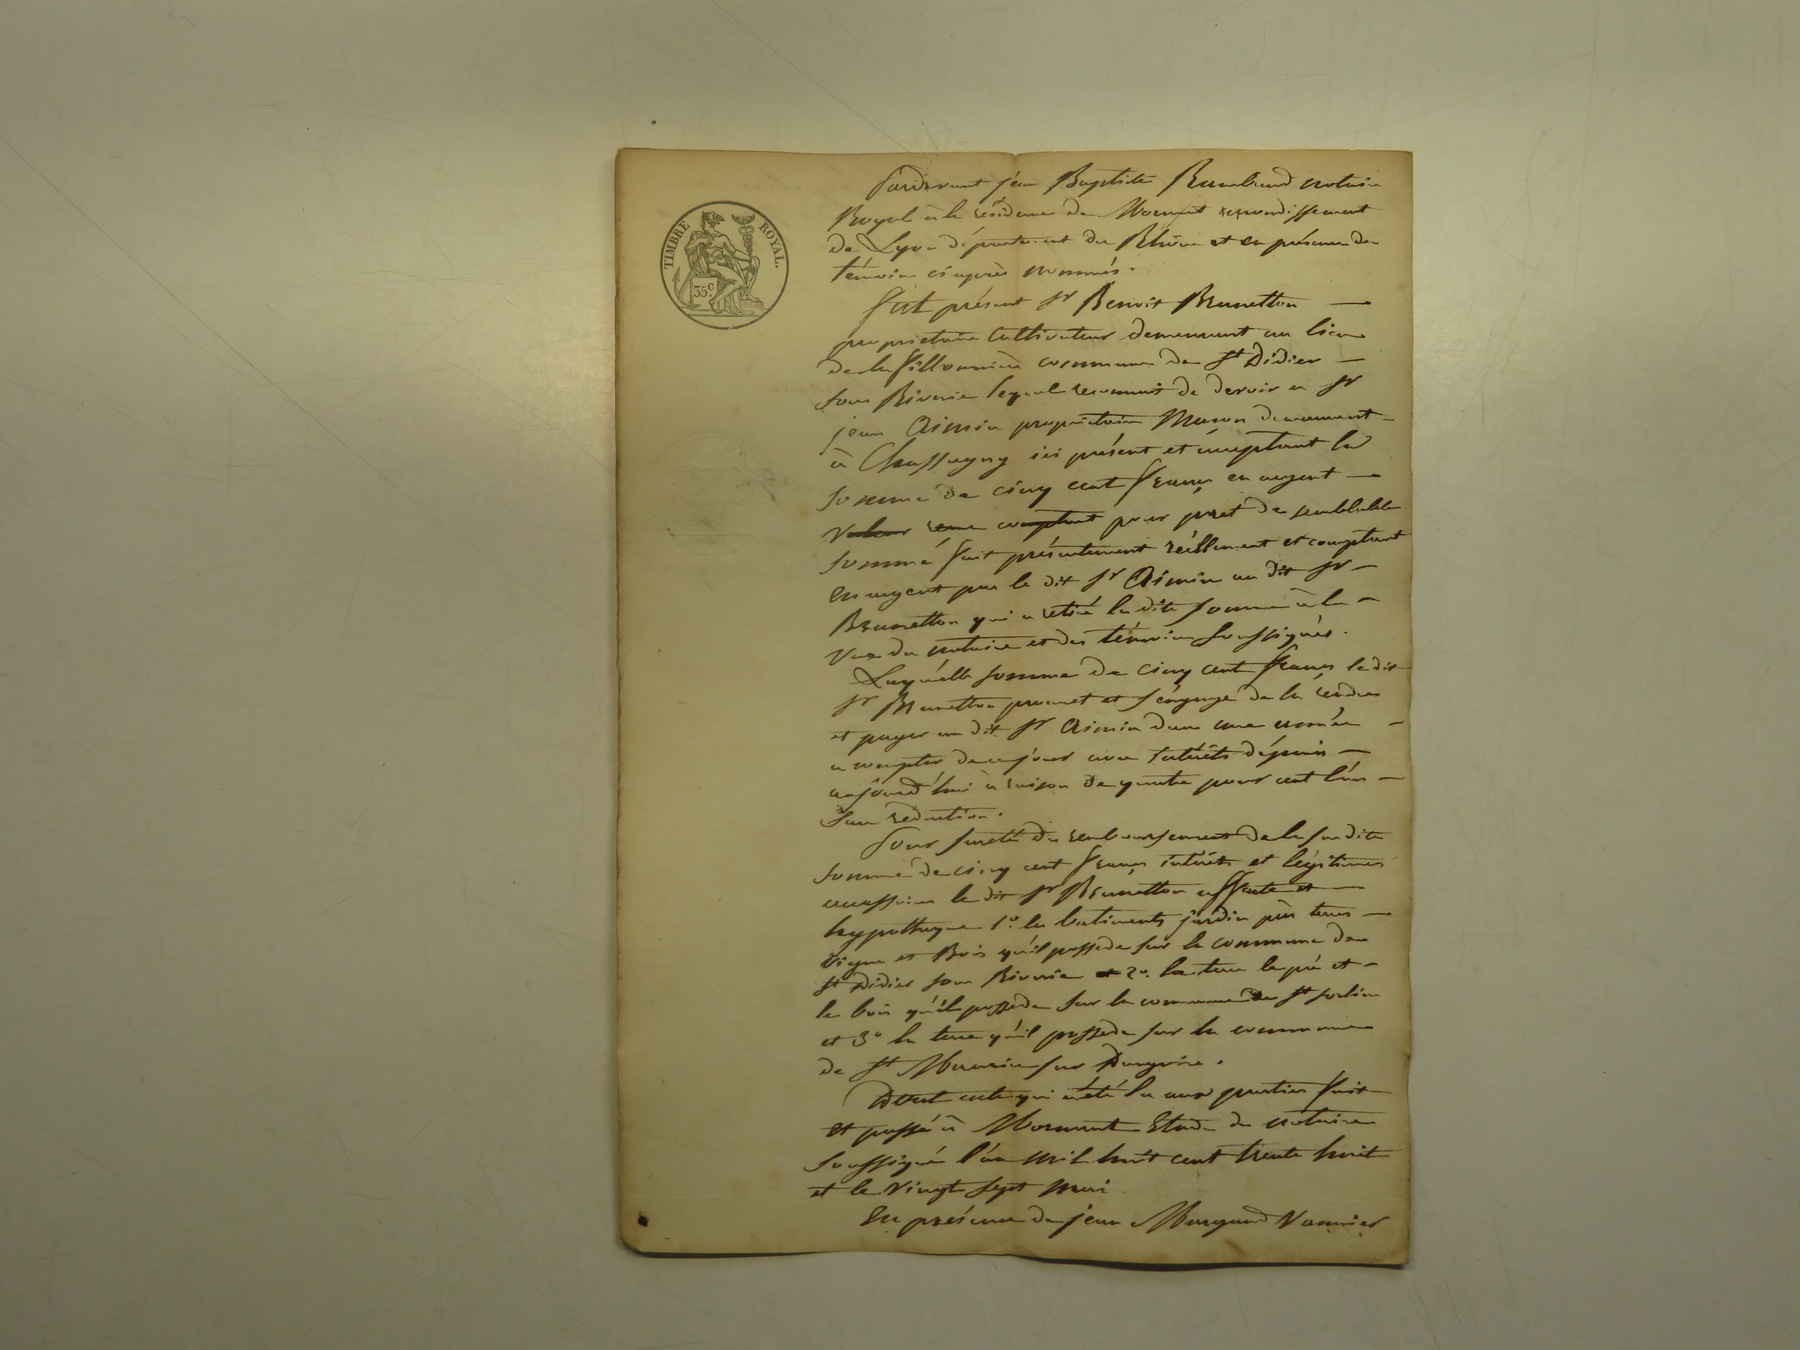 TIMBRE ROYAL.
35c.
Pardevant jean Baptiste Rambaud notaire
Royal à la résidence de Mornant arrondissement
de Lyon département du Rhône et en présence de
témoins ci après nommés.
Fut présent Sr Benoit Brunetton
proprietaire cultivateur demeurant au lieu
de la fillonnière commune de St Didier
sous Riverie lequel reconnait de devoir a Sr
jean Aimin propriétaire Maçon demeurant
à Chassagny ici présent et acceptant la
somme de cinq cent francs en argent
valeur comptant pour pret de semblable
sommé fait présentement réellement et comptant
en argent par le dit Sr Aimin au dit Sr
Brunetton qui a retiré la dite somme à la
vue du notaire et des témoins soussignés.
Laquelle somme de cinq cent francs le dit
Sr Brunetton promet et s'engage de la rendre
et payer au dit Sr Aimin dans une année
a compter de ce jour avec intérêts dépuis
aujourd'hui à raison de quatre pour cent l'an
sans reduction.
Pour sureté du remboursement de la susdite
somme de cinq cent francs intérêts et légitimes
accessoires le dit Sr Brunetton affecte et
hypotheque 1o les batiments jardin près terres
vigne et Bois qu'il possede sur la commune de
St Didier sous Riverie et 2o. la terre le pré et
le bois qu'il possede sur la commune de St sorlin
et 3o la terre qu'il possede sur la commune
de St Maurice sur Dargoire.
Dont acte qui a été lu aux parties fait
et passé à Mornant Etude du notaire
soussigné l'an mil huit cent trente huit
et le vingt sept mai
En présence de jean Vannier